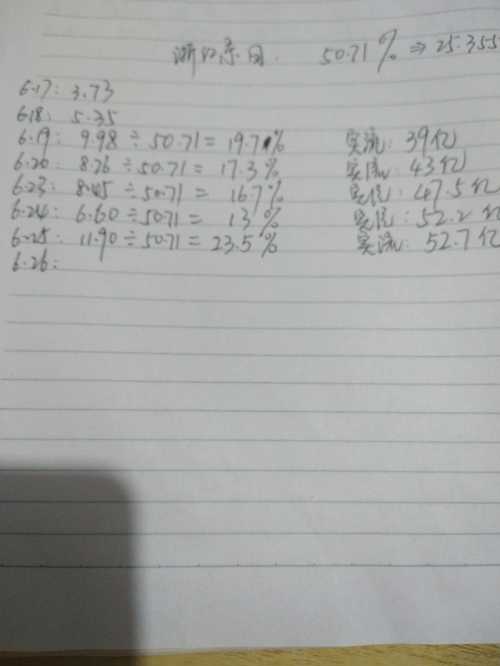 浙江东日 50.71% ⇒ 25.355
6.17: 3.73
6.18: 5.35
6.19: 9.98 ÷ 50.71 = 19.7% 实流: 39亿
6.20: 8.26 ÷ 50.71 = 17.3% 实流: 43亿
6.23: 8.45 ÷ 50.71 = 16.7% 实流: 47.5亿
6.24: 6.60 ÷ 50.71 = 13% 实流: 52.2亿
6.25: 11.90 ÷ 50.71 = 23.5% 实流: 52.7亿
6.26: